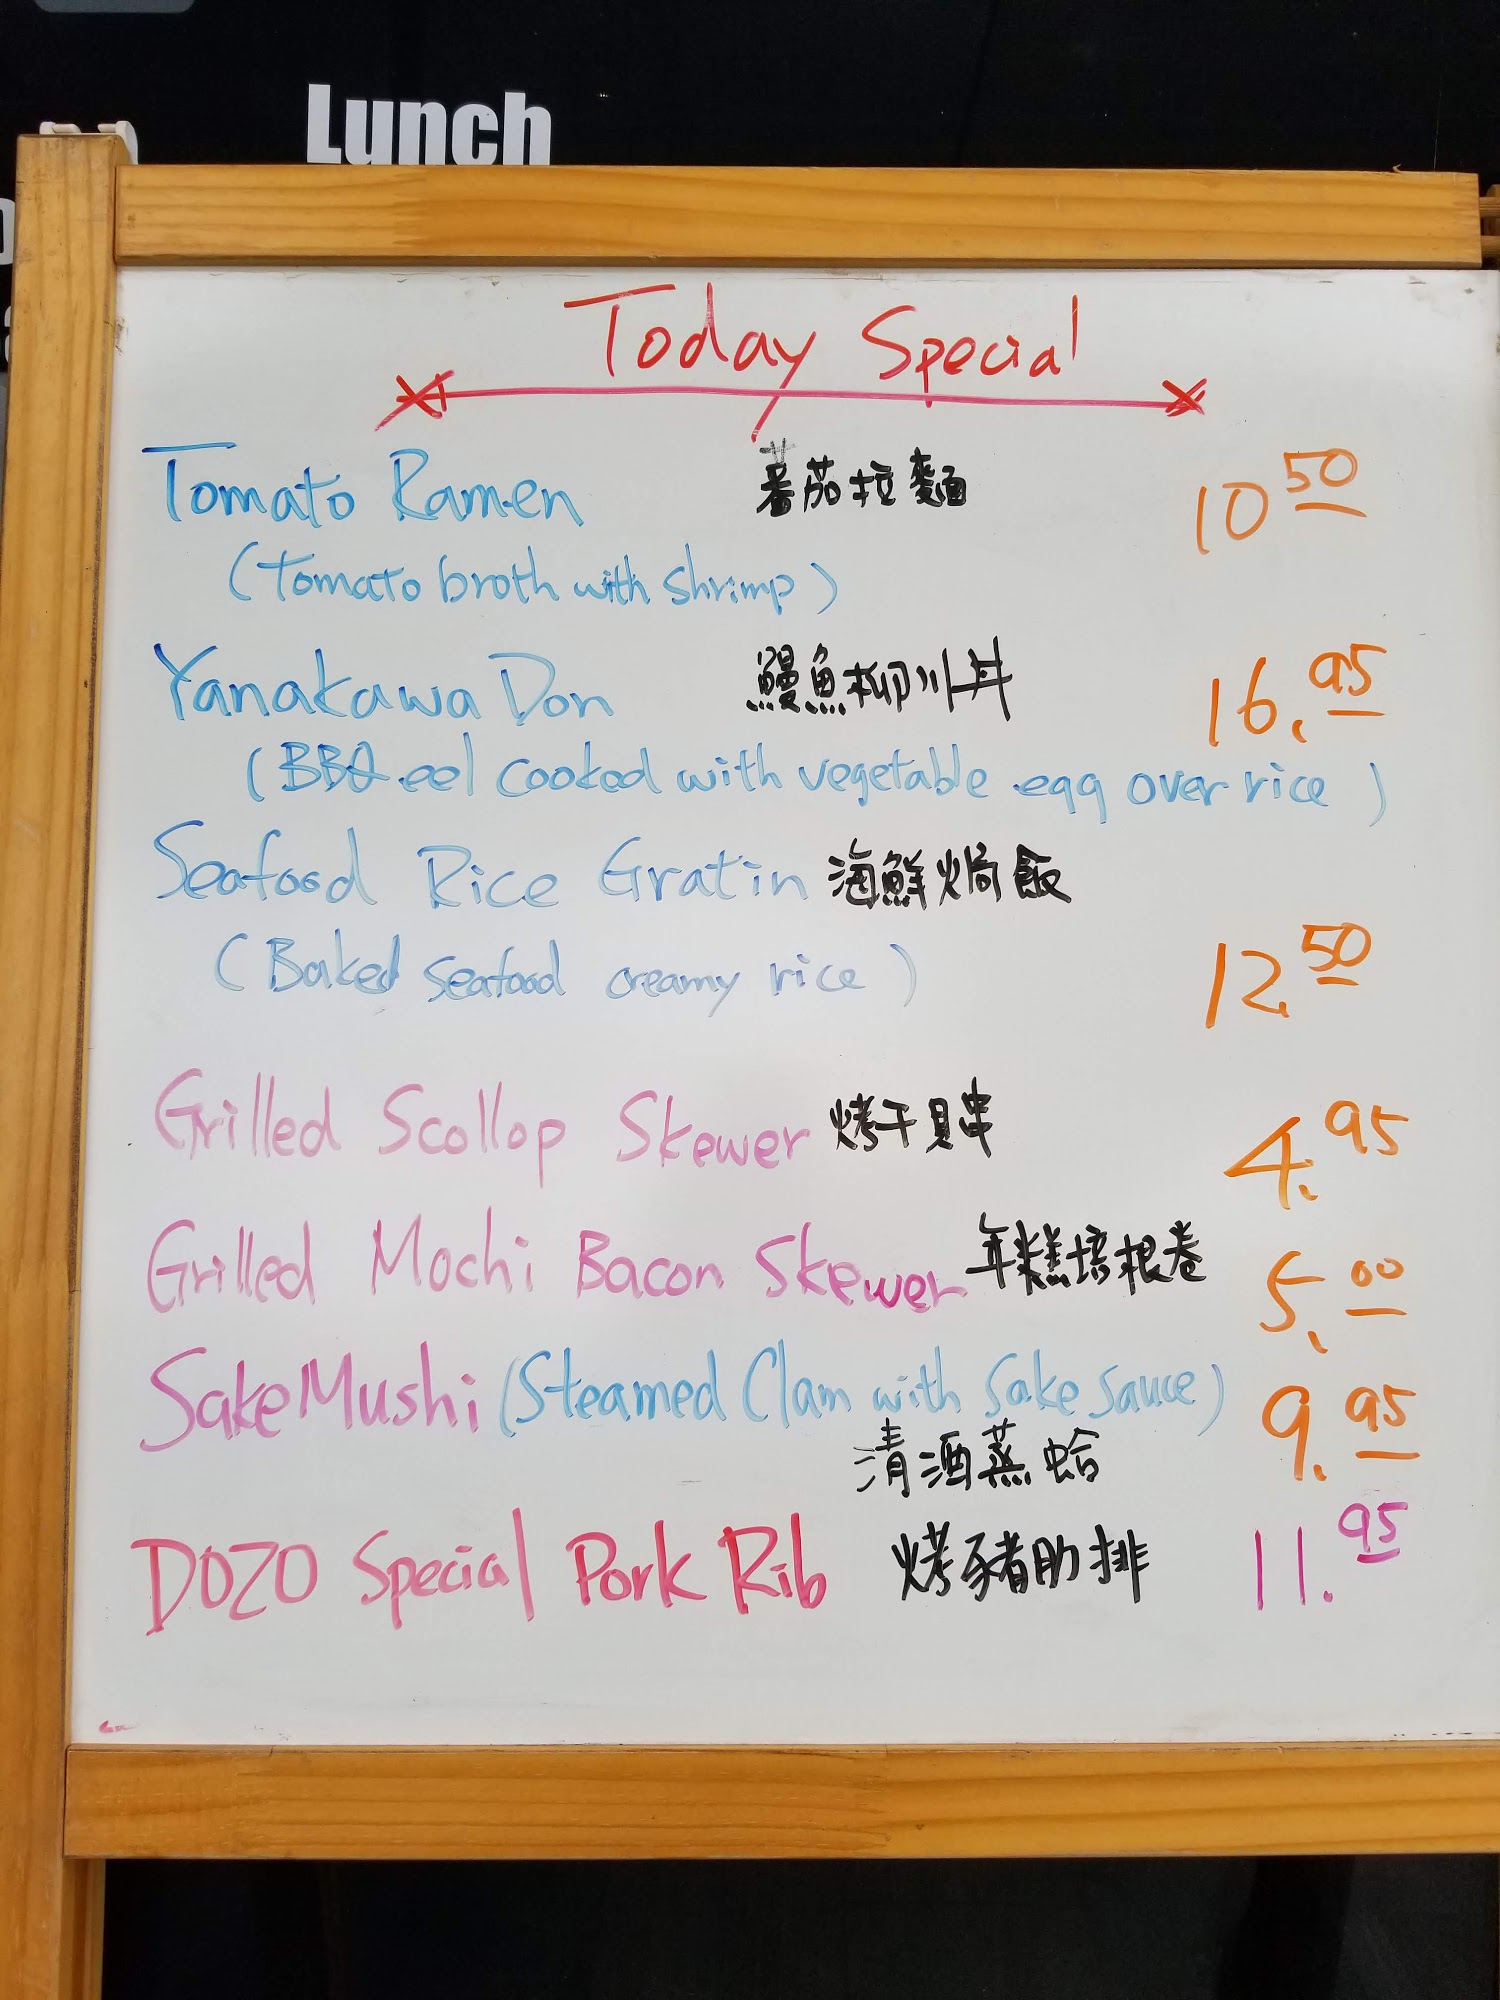 Lunch
Today Special
Tomato Ramen 蕃茄拉麵 10 50
(Tomato broth with shrimp)
Yanakawa Don 鰻魚柳川丼 16.95
(BBQ eel cooked with vegetable egg over rice)
Seafood Rice Gratin 海鮮焗飯
(Baked seafood creamy rice) 12.50
Grilled Scollop Skewer 烤干貝串 4.95
Grilled Mochi Bacon Skewer 年糕培根卷 5.00
Sake Mushi (Steamed Clam with Sake Sauce) 9.95
清酒蒸蛤
DOZO Special Pork Rib 烤豬肋排 11.95